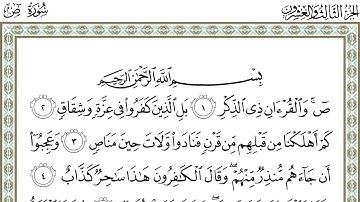 الجزء الثالث والعشرون سورة ص
بِسْمِ ٱللَّهِ ٱلرَّحْمَٰنِ ٱلرَّحِيمِ
صٓ ۚ وَٱلْقُرْءَانِ ذِى ٱلذِّكْرِ ١ بَلِ ٱلَّذِينَ كَفَرُوا۟ فِى عِزَّةٍ وَشِقَاقٍ ٢
كَمْ أَهْلَكْنَا مِن قَبْلِهِم مِّن قَرْنٍ فَنَادَوا۟ وَّلَاتَ حِينَ مَنَاصٍ ٣ وَعَجِبُوٓا۟
أَن جَآءَهُم مُّنذِرٌ مِّنْهُمْ ۖ وَقَالَ ٱلْكَٰفِرُونَ هَٰذَا سَٰحِرٌ كَذَّابٌ ٤